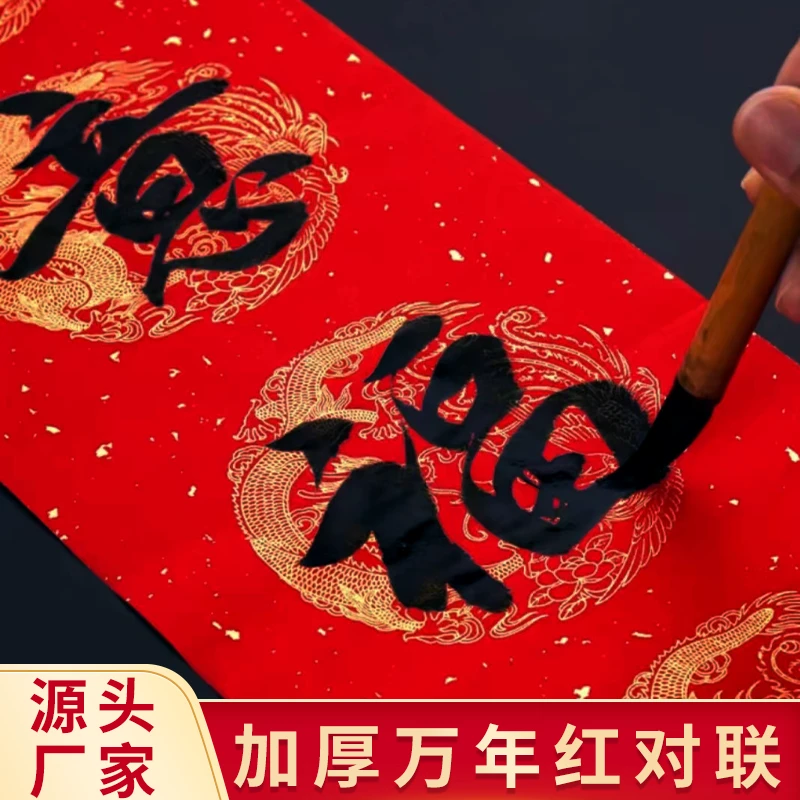 福
源头
厂家
加厚万年红对联